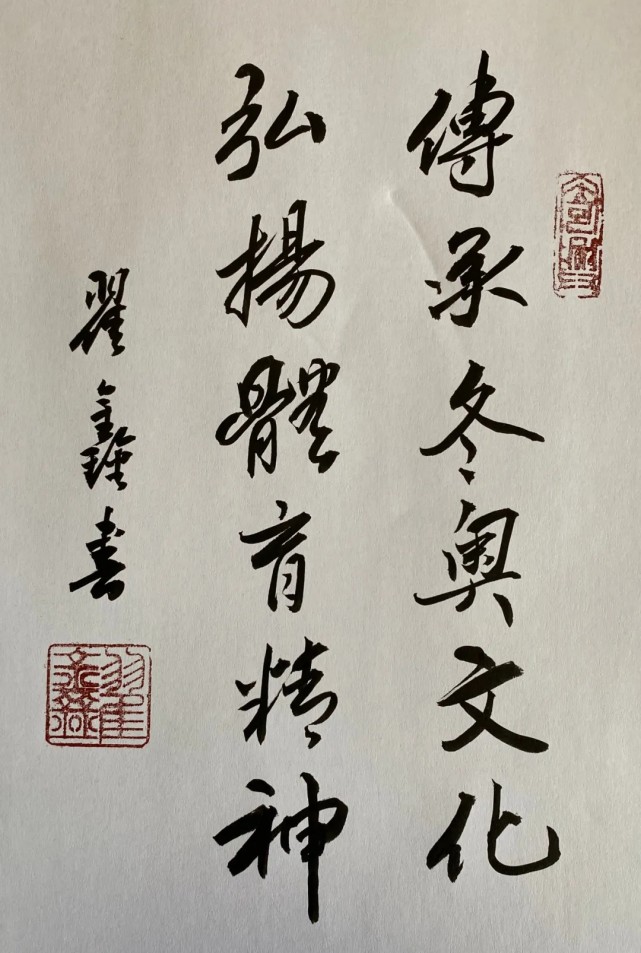 傳承冬奥文化
弘揚體育精神
翟鑫書